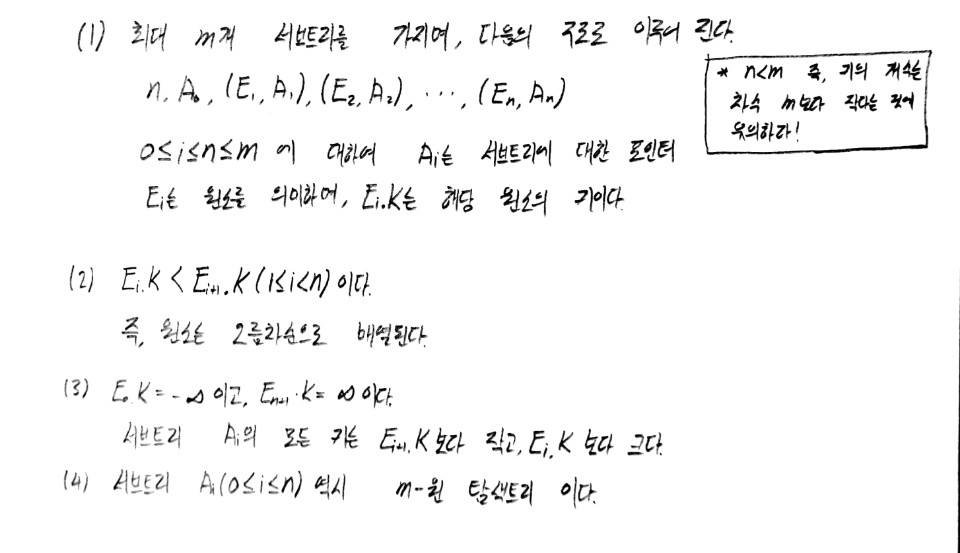 (1) 최대 m개 서브트리를 가지며, 다음의 구조로 이루어 진다.
n, A₀, (E₁, A₁), (E₂, A₂), ⋯, (Eₙ, Aₙ)
* n<m 즉, 키의 개수는
차수 m보다 작다는 것에
유의하라!
0≤i≤n≤m 에 대하여 Aᵢ는 서브트리에 대한 포인터
Eᵢ는 원소를 의미하며, Eᵢ.K는 해당 원소의 키이다.
(2) Eᵢ.K < Eᵢ₊₁.K (1≤i<n) 이다.
즉, 원소는 오름차순으로 배열된다.
(3) E₀.K = -∞ 이고, Eₙ₊₁.K = ∞ 이다.
서브트리 Aᵢ의 모든 키는 Eᵢ₊₁.K 보다 작고, Eᵢ.K 보다 크다.
(4) 서브트리 Aᵢ(0≤i≤n) 역시 m-원 탐색트리 이다.